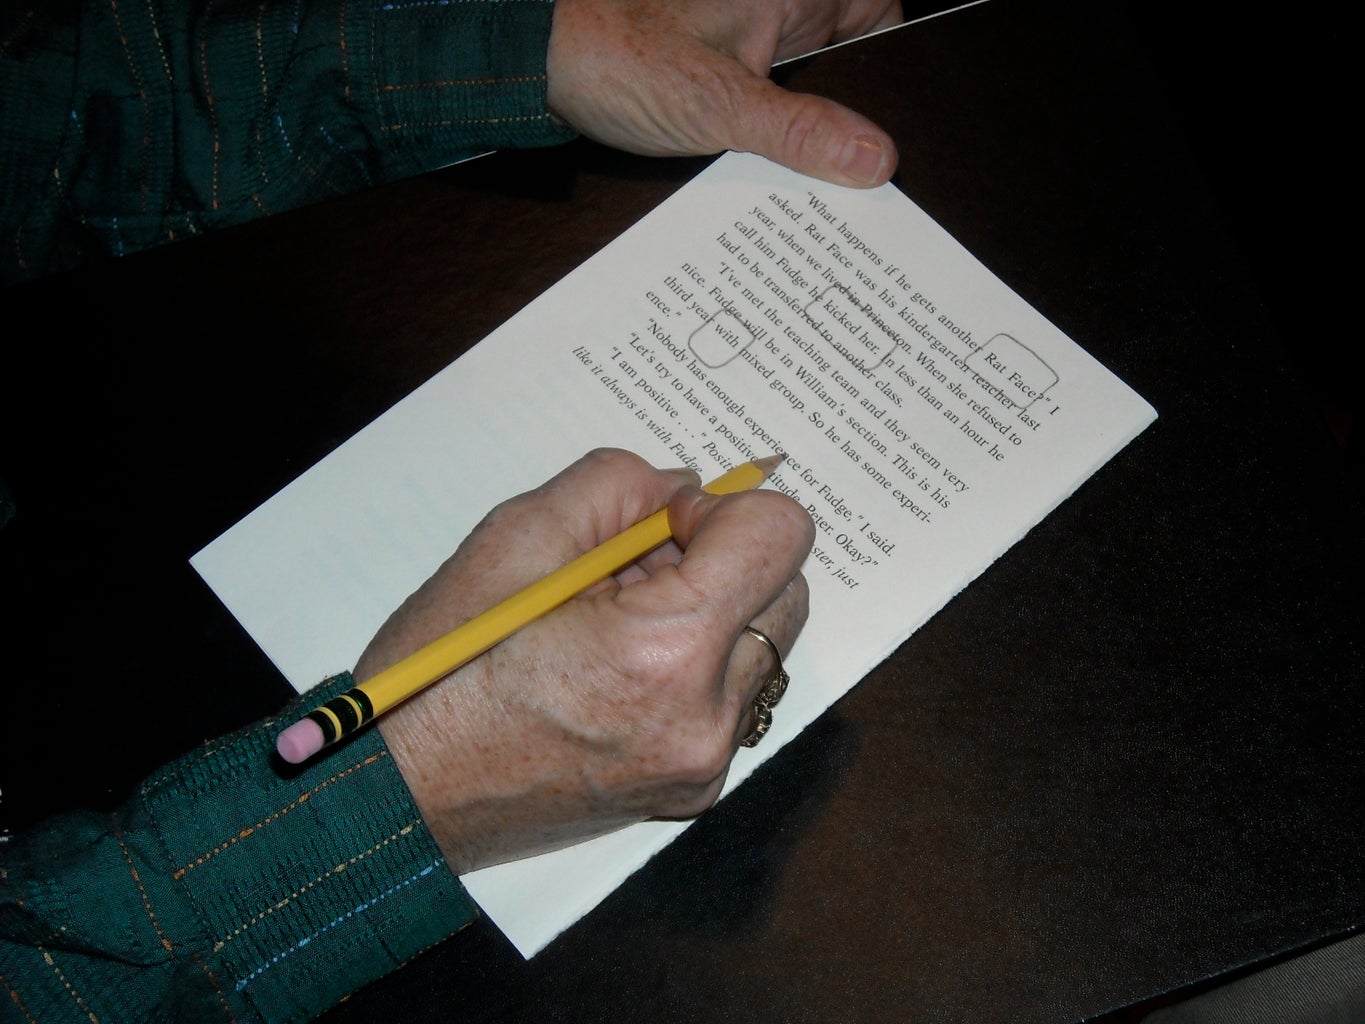 "What happens if he gets another Rat Face?" I
asked. Rat Face was his kindergarten teacher last
year, when we lived in Princeton. When she refused to
call him Fudge he kicked her. In less than an hour he
had to be transferred to another class.
"I've met the teaching team and they seem very
nice. Fudge will be in William's section. This is his
third year with mixed group. So he has some experi-
ence."
"Nobody has enough experience for Fudge," I said.
"Let's try to have a positive titude, Peter. Okay?"
"I am positive . . . ." Positi ster, just
like it always is with Fudge